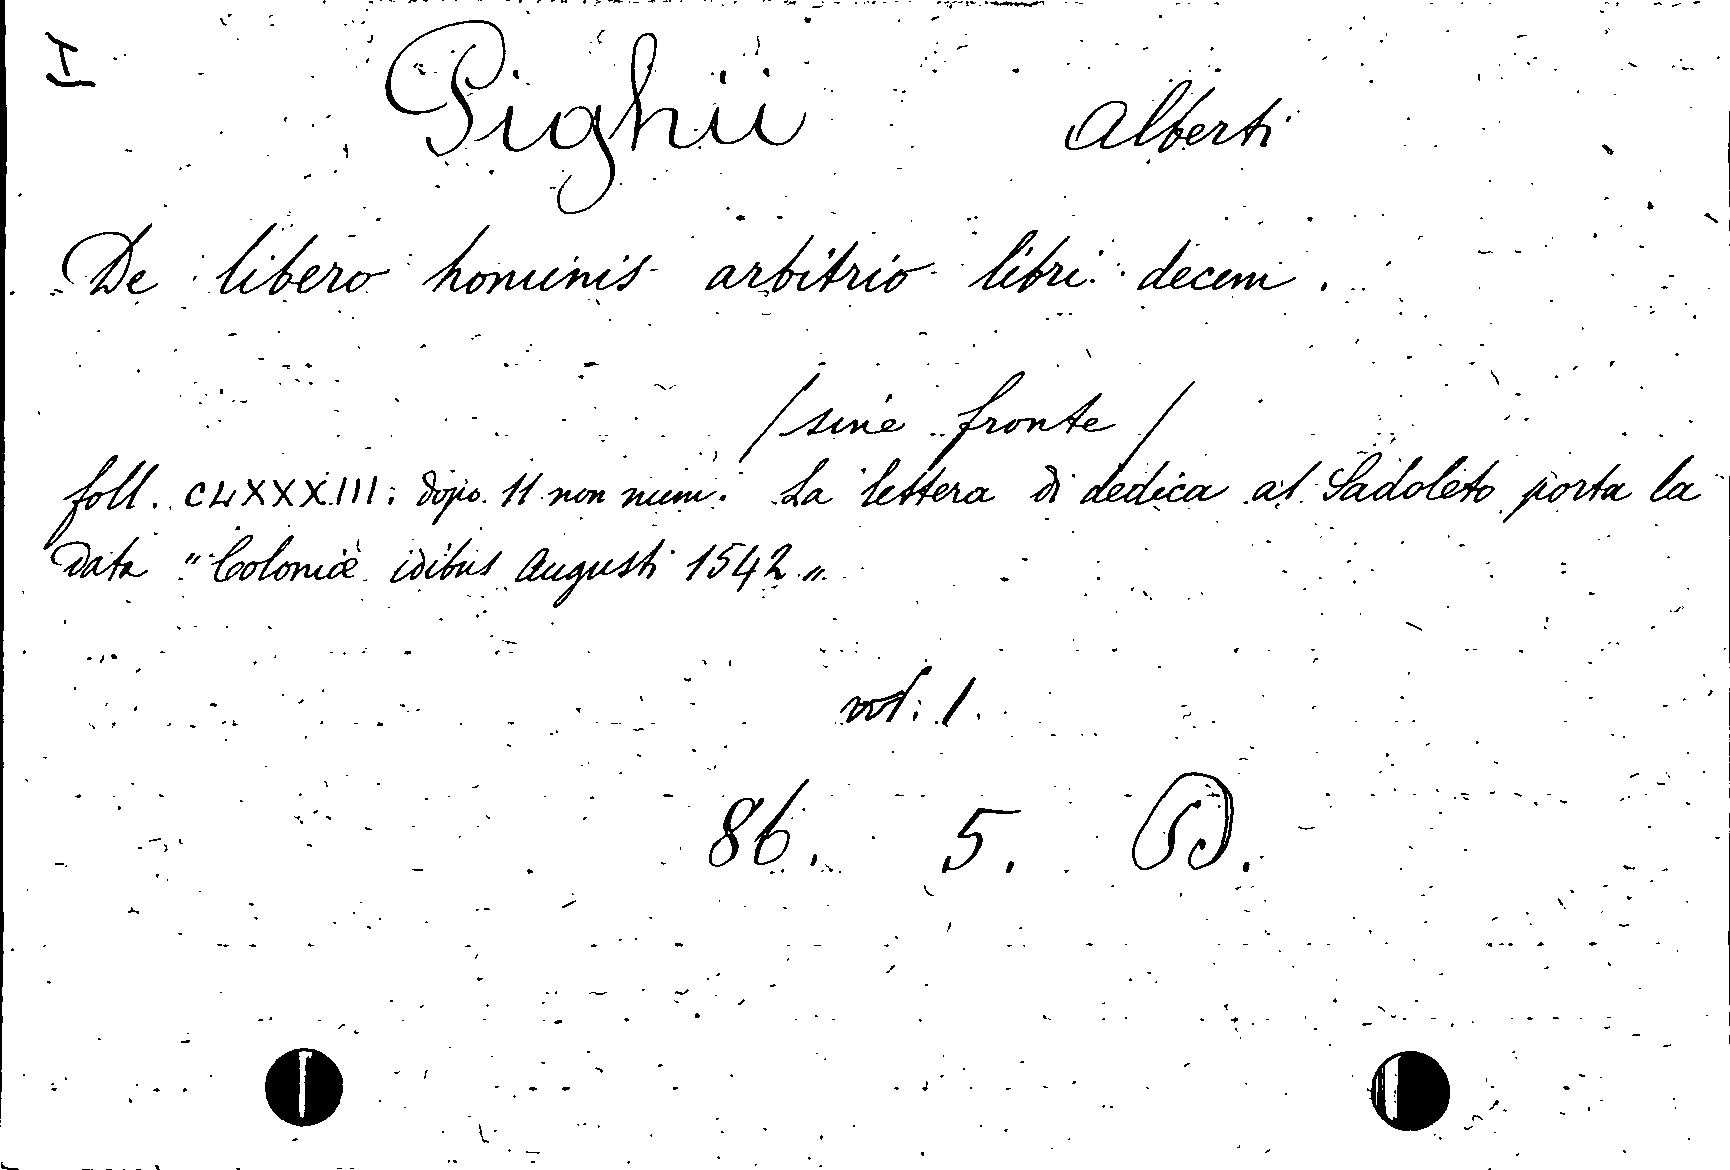 I
Pighii Alberti
De libero hominis arbitrio libri decem.
/sine fronte/
foll. CLXXXIII. dopo 11 non num. La lettera di dedica al Sadoleto porta la
data "Coloniæ idibus Augusti 1542".
vol. 1.
86. 5. D.